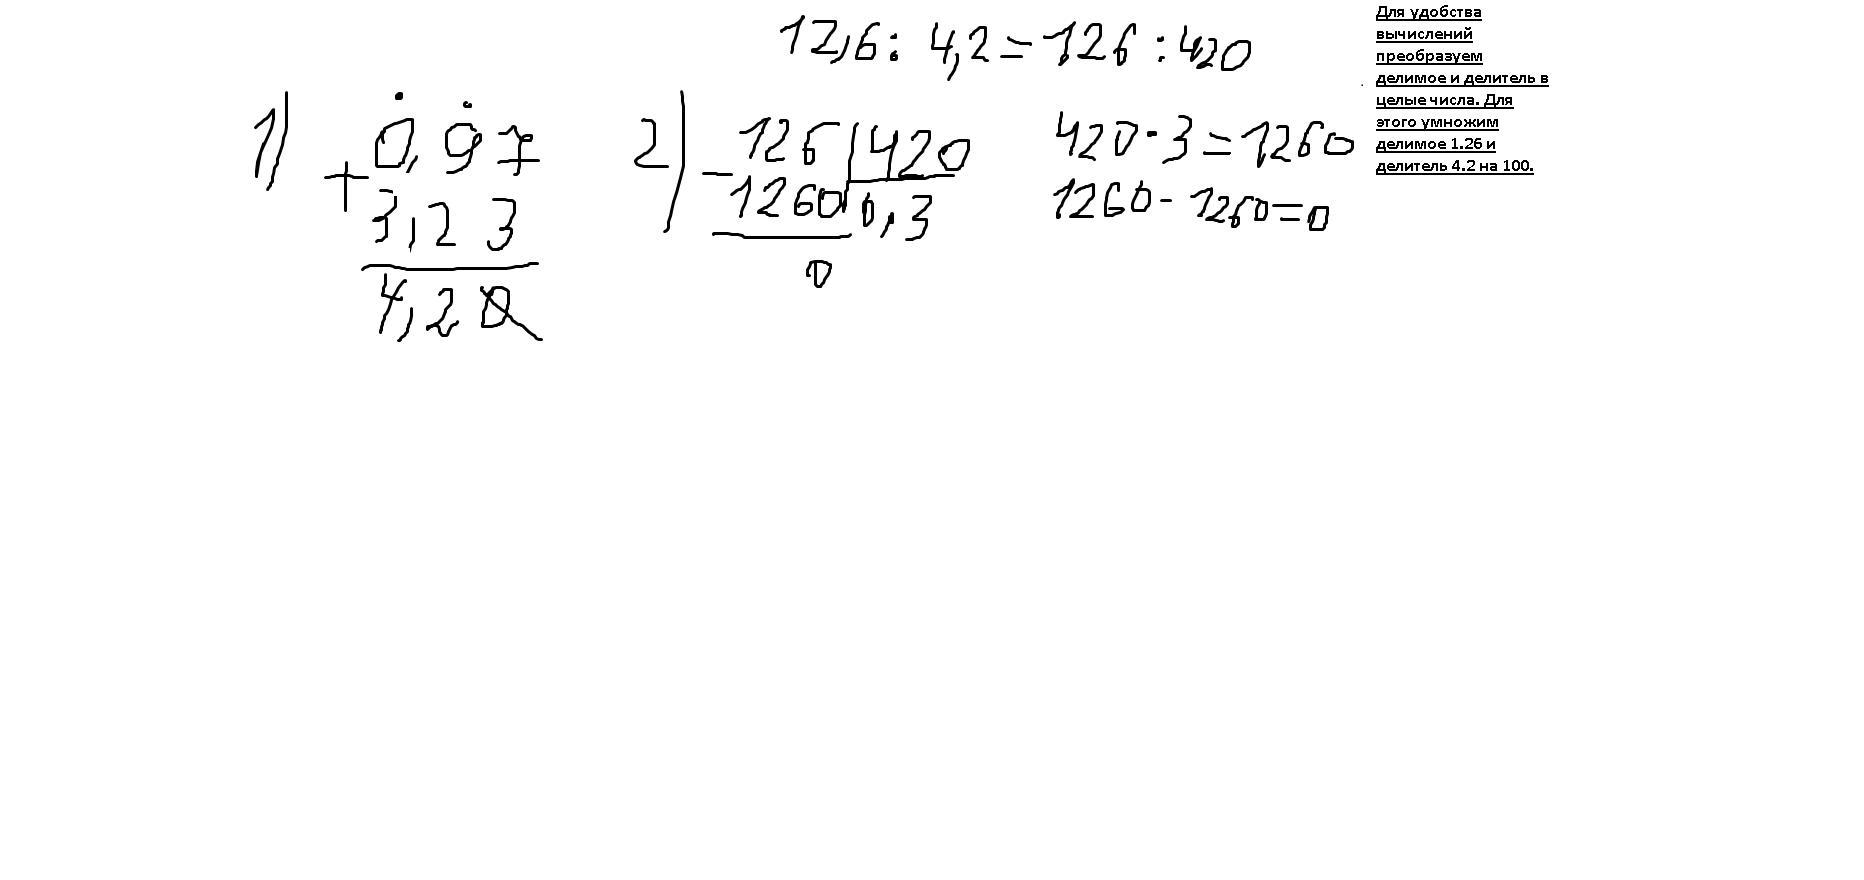 12,6 : 4,2 = 126 : 420
1) 0,97
+
3,23
4,20
2) - 126 | 420
1260 0,3
0
420 · 3 = 1260
1260 - 1260 = 0
Для удобства
вычислений
преобразуем
делимое и делитель в
целые числа. Для
этого умножим
делимое 1.26 и
делитель 4.2 на 100.